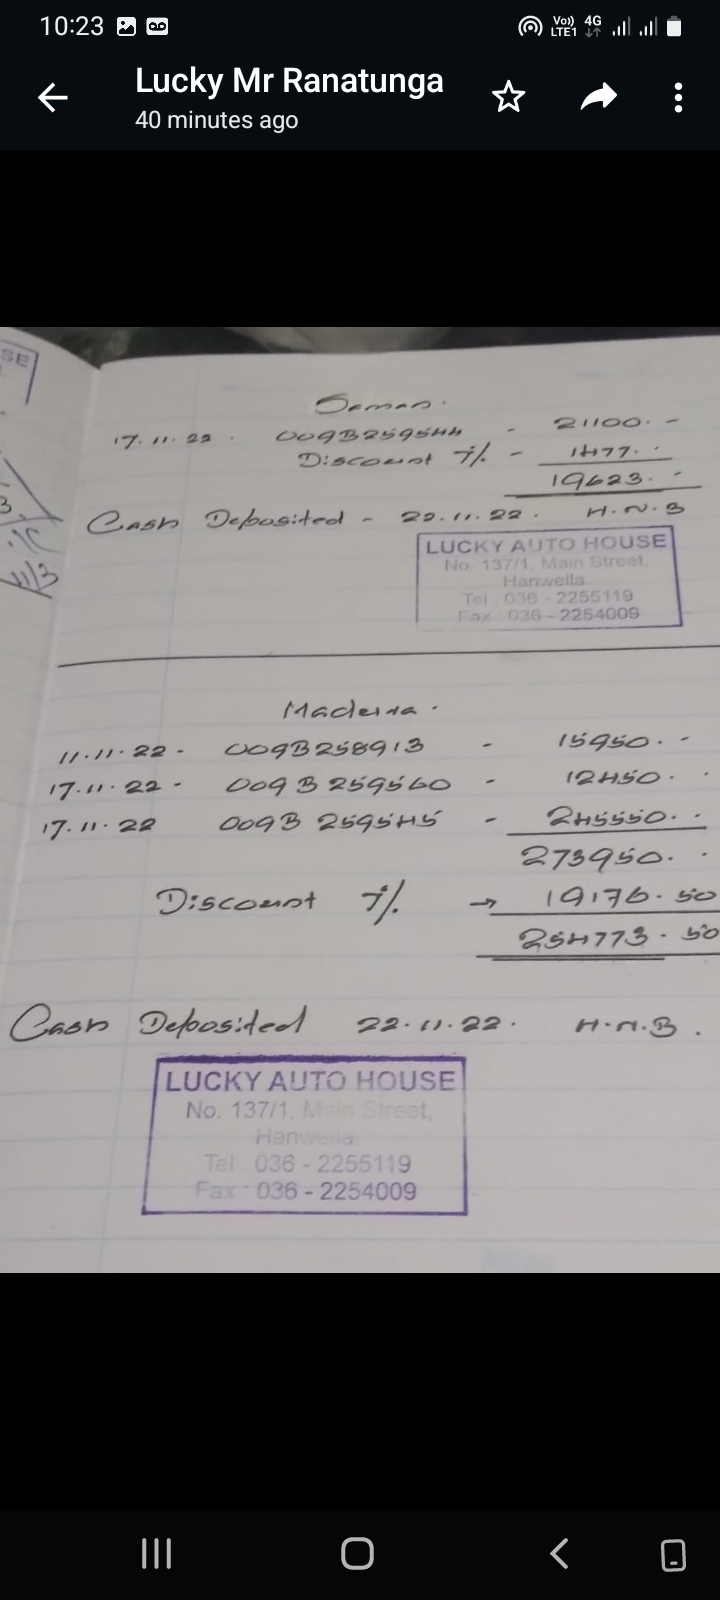 10:23 Vo)) LTE1 4G
Lucky Mr Ranatunga
40 minutes ago
SE
Saman.
17.11.22. 009B259544 - 21100.-
Discount 7% - 1477.
19623.-
Cash Deposited - 22.11.22. H.N.B
LUCKY AUTO HOUSE
No. 137/1, Main Street,
Hanwella.
Tel : 036 - 2255119
Fax : 036 - 2254009
11.11.22 - 009B258913 - 15950.-
17.11.22 - 009B 259560 - 12450.
17.11.22 009B 259545 - 245550.
273950.
Discount 7% → 19176.50
254773.50
Cash Deposited 22.11.22. H.N.B.
LUCKY AUTO HOUSE
No. 137/1, Main Street,
Hanwella.
Tel : 036 - 2255119
Fax : 036 - 2254009